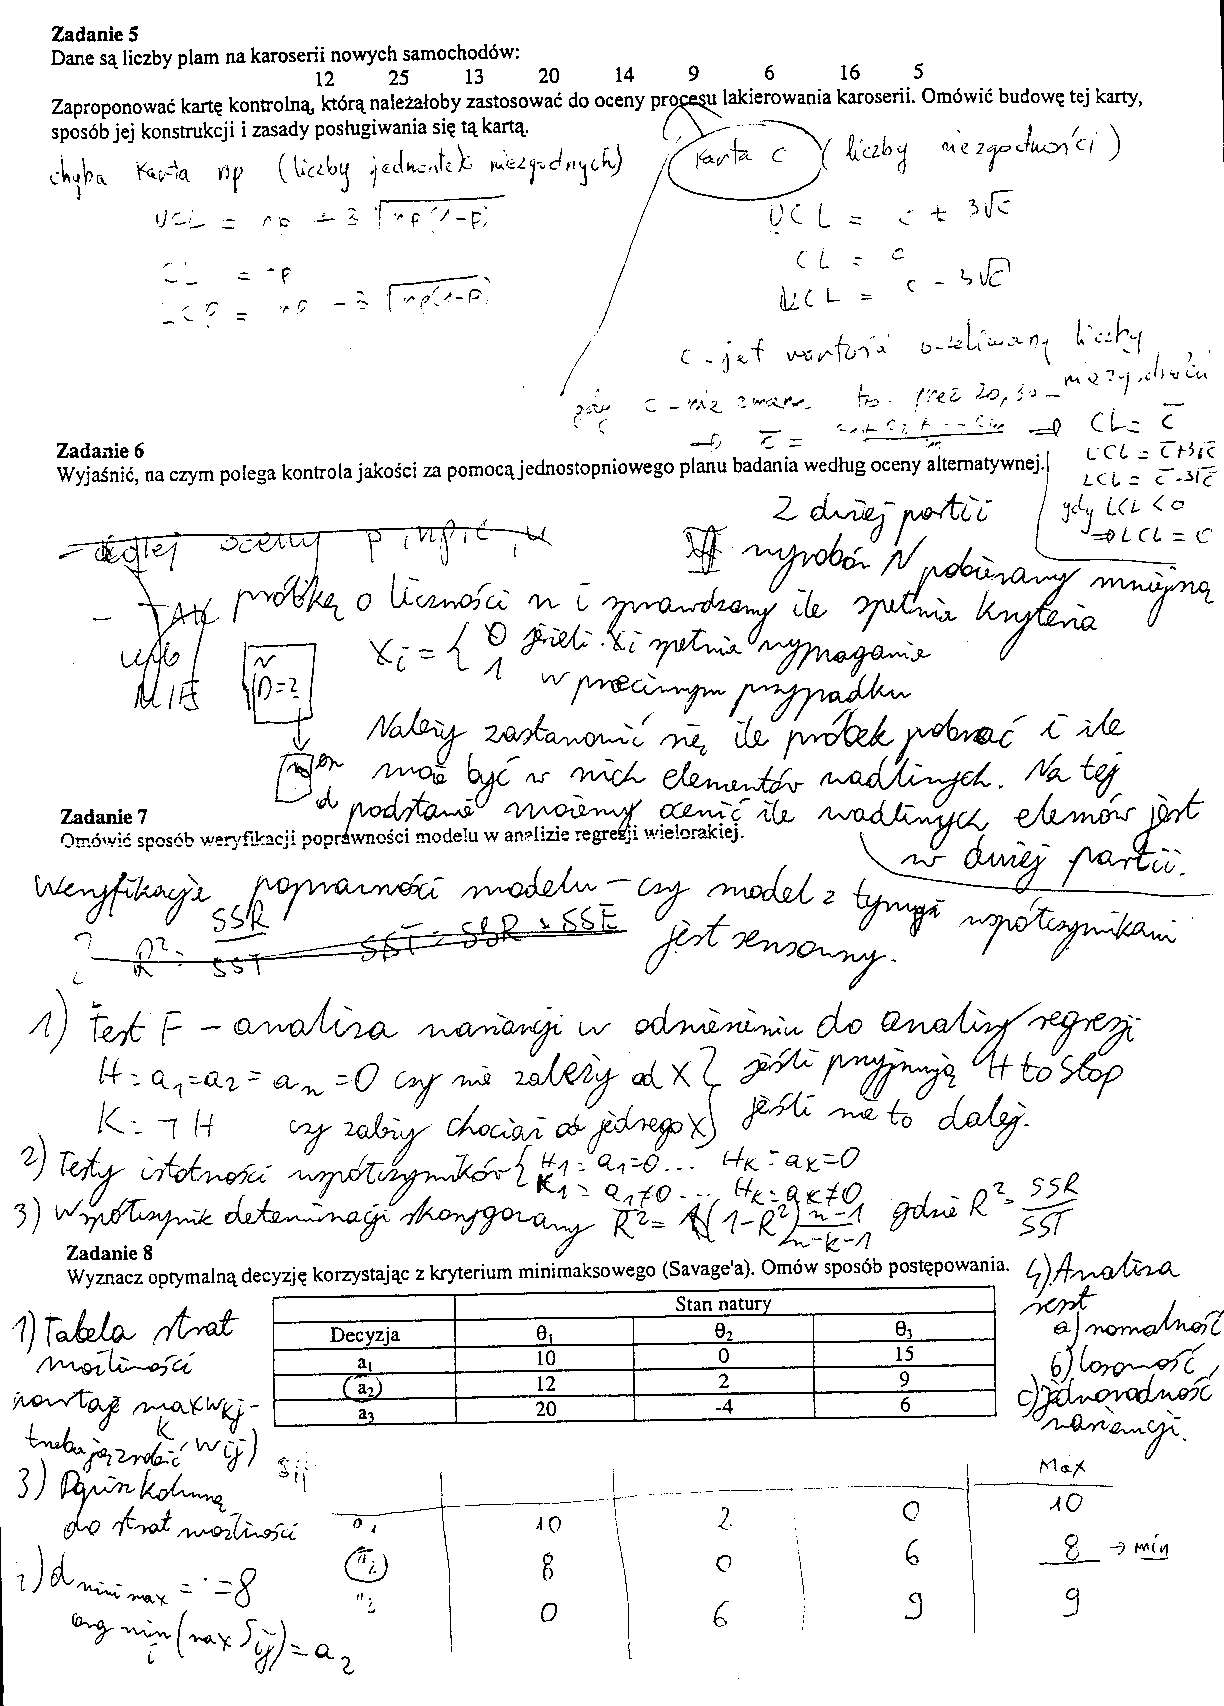 Zadanie 5
Dane są liczby plam na karoserii nowych samochodów:
12 25 13 20 14 9 6 16 5
Zaproponować kartę kontrolną, którą należałoby zastosować do oceny procesu lakierowania karoserii. Omówić budowę tej karty,
sposób jej konstrukcji i zasady posługiwania się tą kartą.
chyba Karta np (liczby jednostek niezgodnych)
UCL = np + 3 √np(1-p)
CL = np
= np - 3 √np(1-p)
Karta c (liczby niezgodności)
UCL = c + 3√c
CL = c
LCL = c - 3√c
c - jest wartością oczekiwaną liczby niezgodności
gdy c - nie znane to przez 20, 30
⇒ c̄ = ⇒ CL = c̄
UCL = c̄+3√c̄
LCL = c̄-3√c̄
gdy LCL < 0
⇒ LCL = 0
Zadanie 6
Wyjaśnić, na czym polega kontrola jakości za pomocą jednostopniowego planu badania według oceny alternatywnej.
Z dużej partii
wyrobów N pobieramy mniejszą
próbkę o liczności n i sprawdzamy ile spełnia kryteria
- TAK
lub
NIE
N
D=?
n
d
Xi = { 0 jeżeli Xi spełnia wymagania
1 w przeciwnym przypadku
Należy zastanowić się, ile próbek pobrać i ile
może być w nich elementów wadliwych. Na tej
podstawie możemy ocenić ile wadliwych elemów jest
w dużej partii.
Zadanie 7
Omówić sposób weryfikacji poprawności modelu w analizie regresji wielorakiej.
Weryfikacja poprawności modelu - czy model z tymi współczynnikami
jest sensowny.
? R² = SSR/SST SST = SSR + SSE
1) Test F - analiza wariancji w odniesieniu do analizy regresji
H: a₁=a₂= aₙ =0 czy nie zależy od X } jeśli przyjmują H to Stop
K: ¬ H czy zależy chociaż od jednego X } jeśli nie to dalej.
2) Testy istotności współczynników { H₁: a₁=0... Hk: ak=0
K₁: a₁≠0..., Hk: ak≠0
3) Współczynnik determinacji skorygowany R̄² = 1(1-R²) n-1/n-k-1 gdzie R² = SSR/SST
4) Analiza
reszt
a) normalność
b) losowość,
c) jednorodność
wariancji.
Zadanie 8
Wyznacz optymalną decyzję korzystając z kryterium minimaksowego (Savage'a). Omów sposób postępowania.
Stan natury
Decyzja θ₁ θ₂ θ₃
a₁ 10 0 15
a₂ 12 2 9
a₃ 20 -4 6
1) Tabela strat
możliwości
max wkj -
k
trzeba ją zrobić wij)
3) Dopisz kolumnę
do strat możliwości
2) d mini max = =8
arg min (max Sij) = a₂
i
Sij
Max
a₁ 10 2 0 10
a₂ 8 0 6 8 → min
0 6 9 9